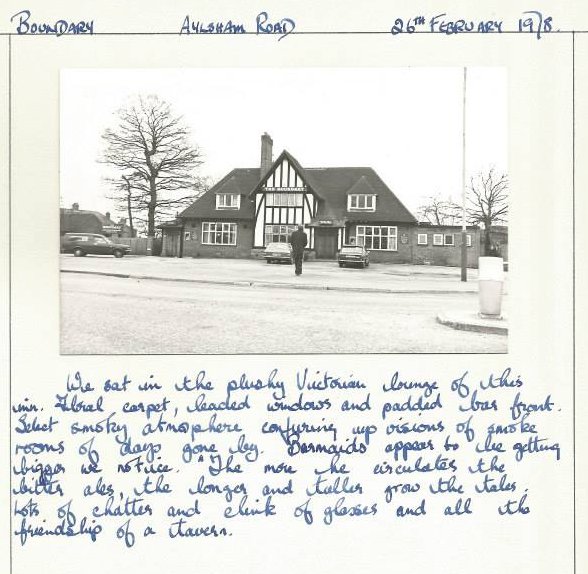 BOUNDARY AYLSHAM ROAD 26TH FEBRUARY 1978.
THE BOUNDARY
We sat in the plushy Victorian lounge of this
inn. Floral carpet, leaded windows and padded bar front.
Select smoky atmosphere conjuring up visions of smoke
rooms of days gone by. Barmaids appear to be getting
bigger we notice. "The more he circulates the
bitter ales, the longer and taller grow the tales.
Lots of chatter and clink of glasses and all the
friendship of a tavern.